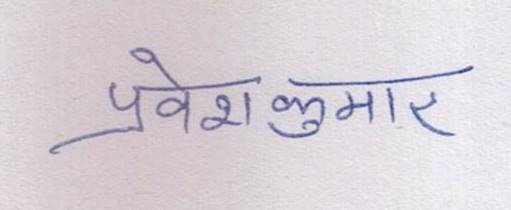 प्रवेश कुमार